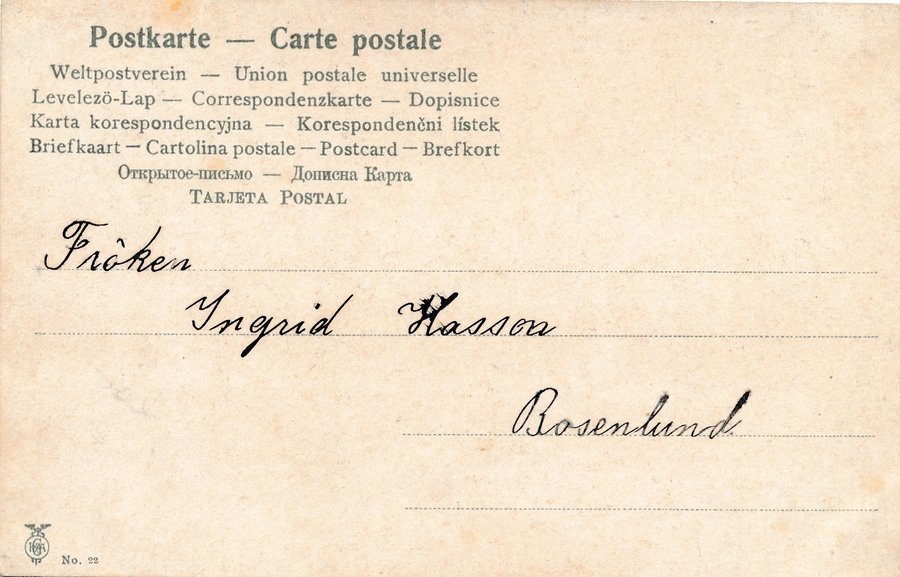 Postkarte — Carte postale
Weltpostverein — Union postale universelle
Levelezö-Lap — Correspondenzkarte — Dopisnice
Karta korespondencyjna — Korespondenĕni lístek
Briefkaart — Cartolina postale — Postcard — Brefkort
Открытое-письмо — Дописна Карта
TARJETA POSTAL
Frôken
Ingrid Hasson
Bosenlund
No. 22